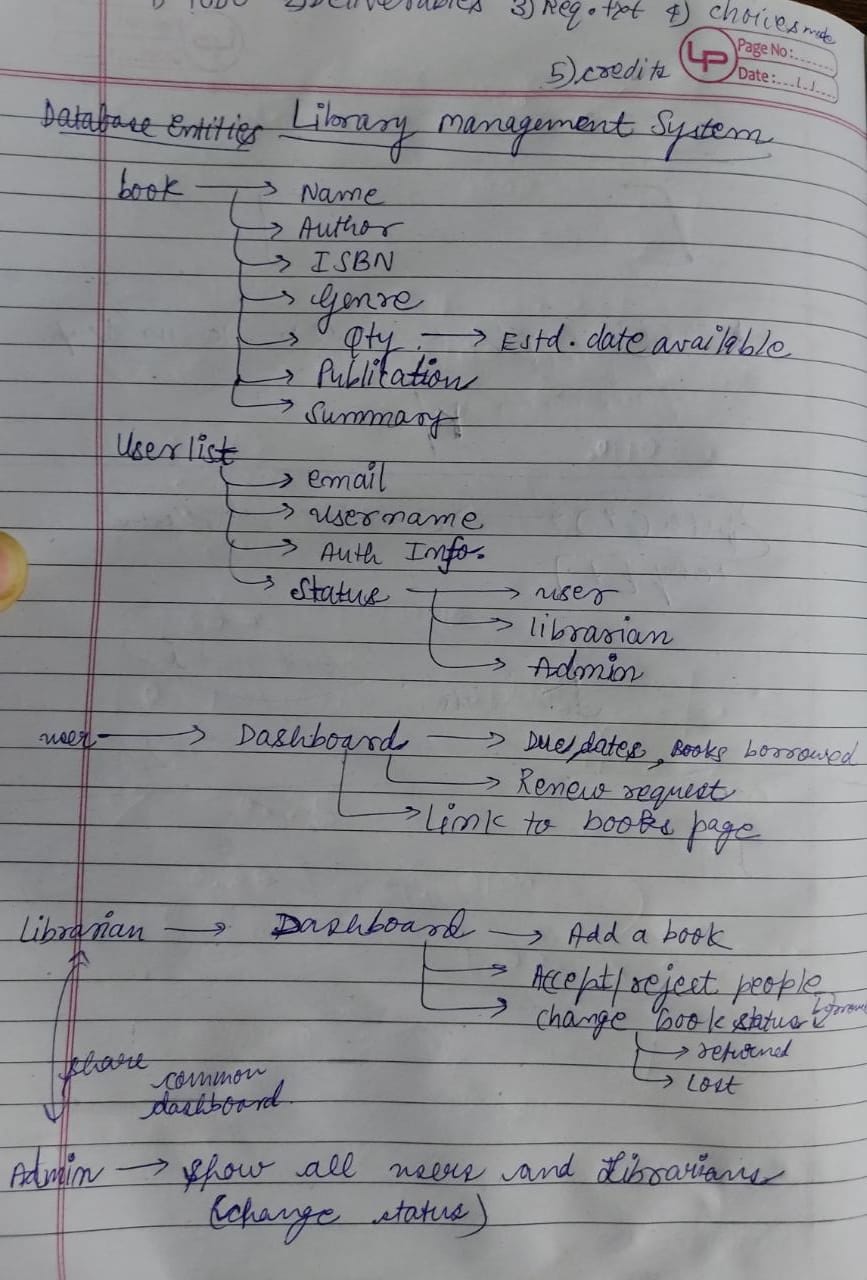 1) TODO 2) Deliverables 3) Req.txt 4) choices made
5) credits
LP
Page No:
Date:
Database Entities Library Management System
book → Name
→ Author
→ ISBN
→ Genre
→ Qty. → Estd. date available
→ Publication
→ Summary
User list
→ email
→ username
→ Auth Info.
→ Status → user
→ librarian
→ Admin
user → Dashboard → Due dates, Books borrowed
→ Renew request
→ Link to books page
Librarian → Dashboard → Add a book
→ Accept/reject people
→ change book status
→ returned
→ Lost
share common
dashboard.
Admin → show all users and Librarians
(change status)